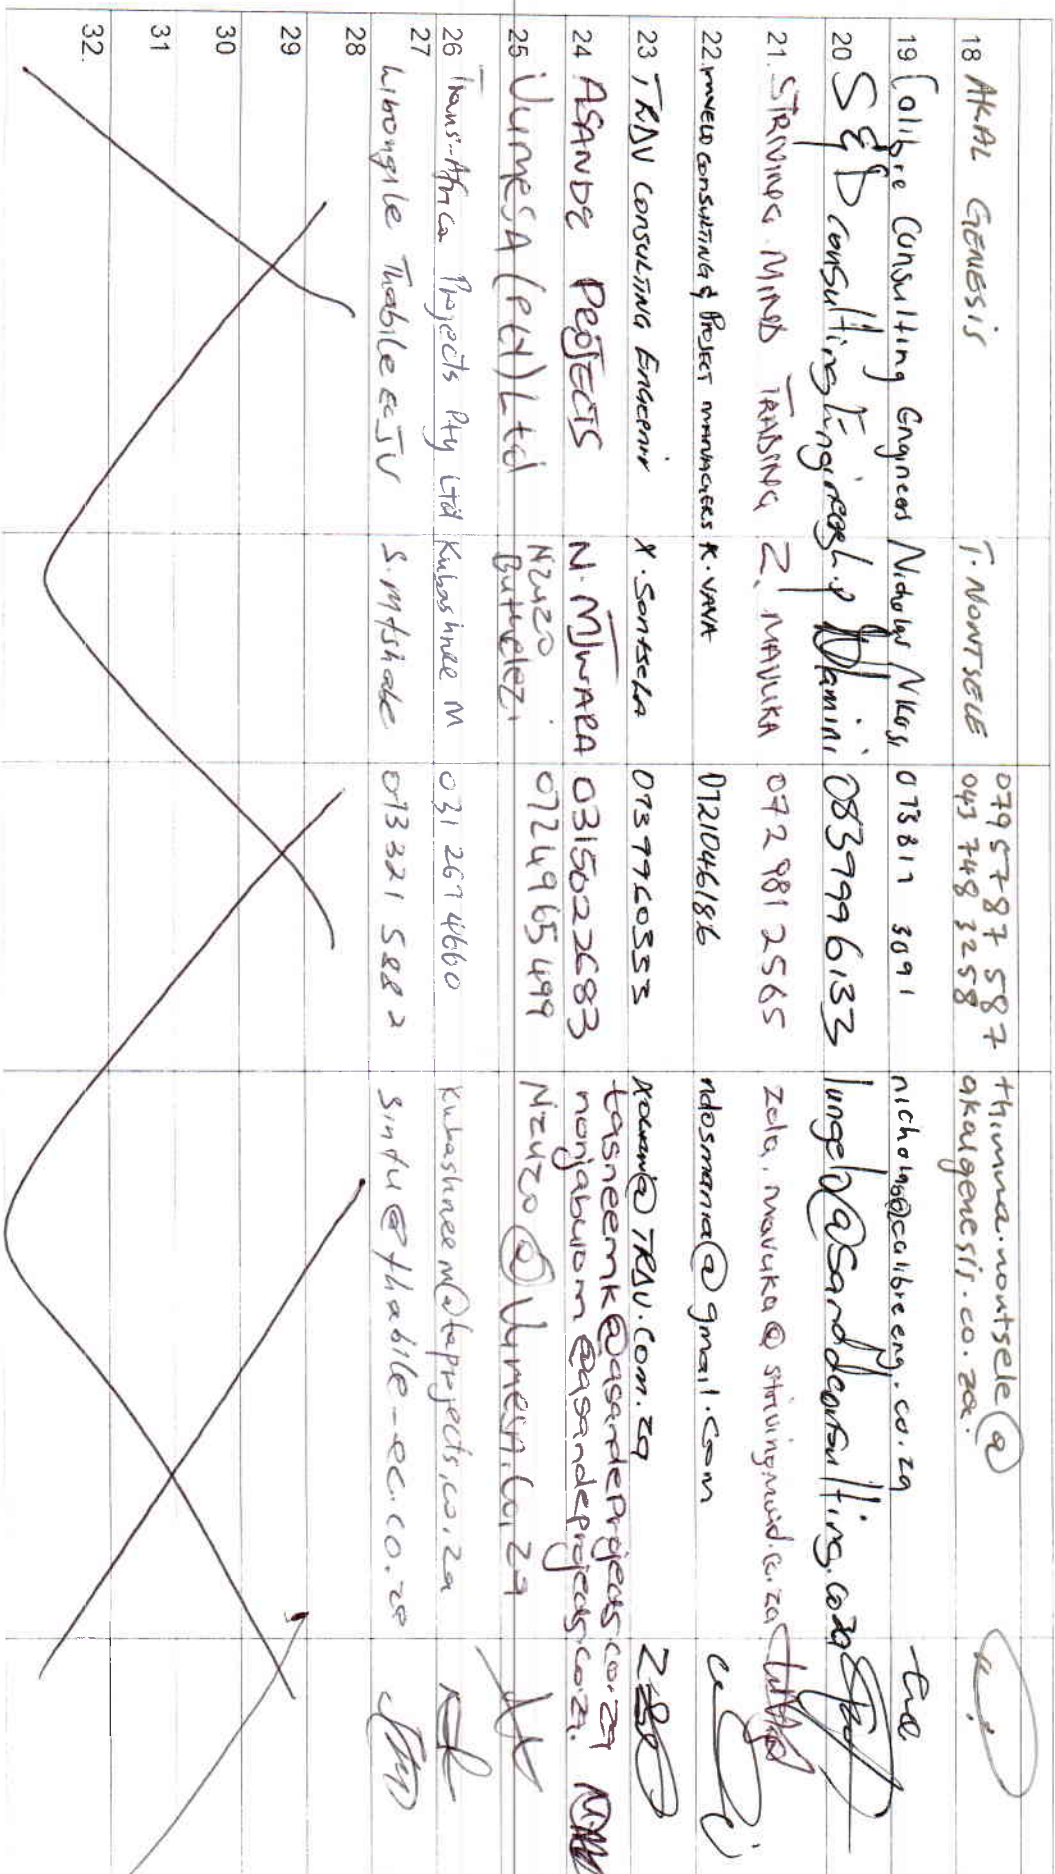 18 AKAL GENESIS T. NONTSELE 079 5787 587 thimna.nontsele@
043 748 3258 akalgenesis.co.za.
19 Calibre Consulting Engineers Nicholas Nkosi 073 817 3091 nicholas@calibreeng.co.za
20 S & D consulting Engineers L.P Dlamini 0839996133 lungelo@sanddconsulting.co.za
21. STRIVING MIND TRADING Z. MAVUKA 072 981 2565 zola.mavuka@strivingmind.co.za
22. CONSULTING & PROJECT MANAGERS K. VAVA 0721046186 ndosmania@gmail.com
23 TRDV CONSULTING X. SONTSELA 0739960353 @TRDV.com.za
24 ASANDE PROJECTS N. MJWARA 0315022683 tasneemk@asandeprojects.co.za
nonjabulom@asandeprojects.co.za.
25 VumesA (Pty) Ltd Nzuzo 0724965499 Nzuzo@Vumesa.co.za
Buthelezi
26 Trans-Africa Projects Pty Ltd Kubashnee M 031 267 4660 Kubashneem@taprojects.co.za
27 Thabile EC JV S. Mtshabe 073 321 5882 Sintu@thabile-ec.co.za
28
29
30
31
32.